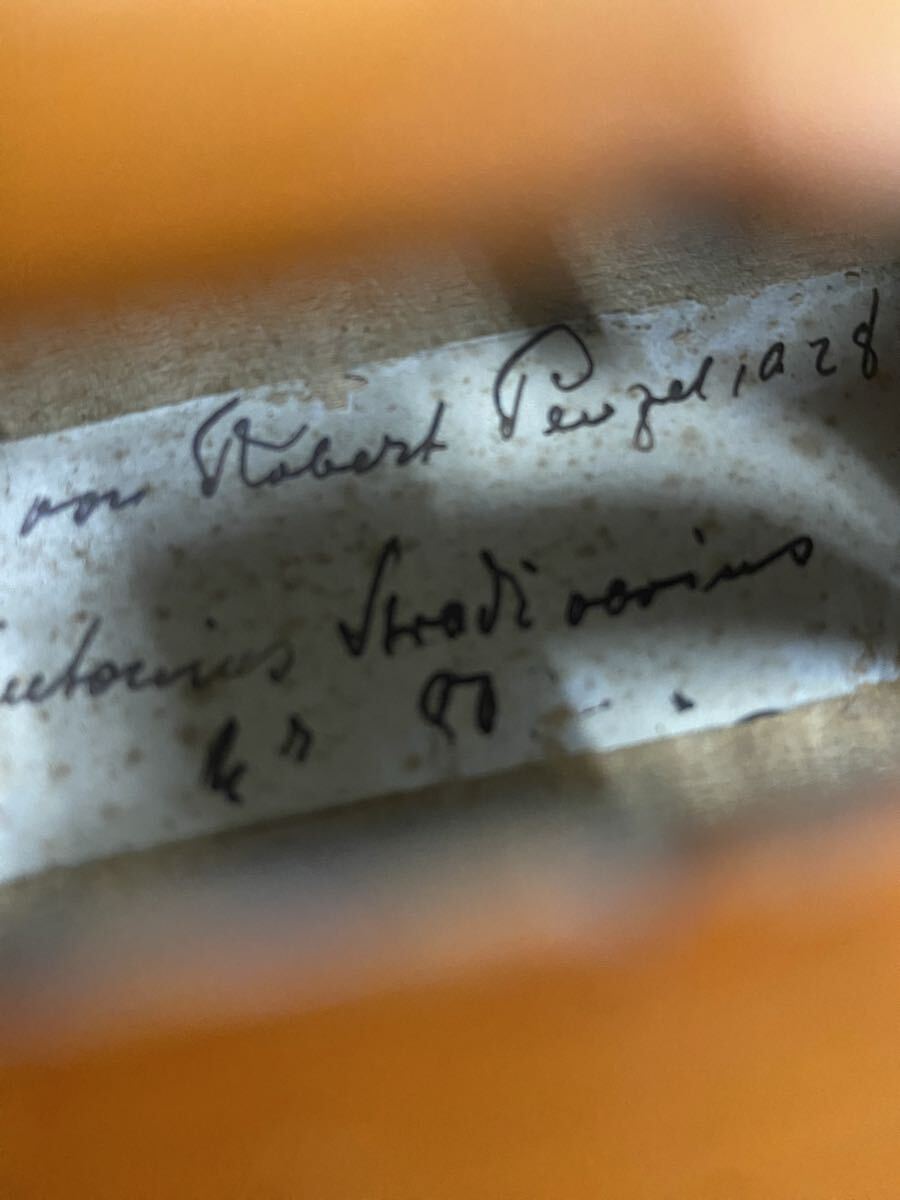 von Robert Penzel, 1928
Antonius Stradivarius